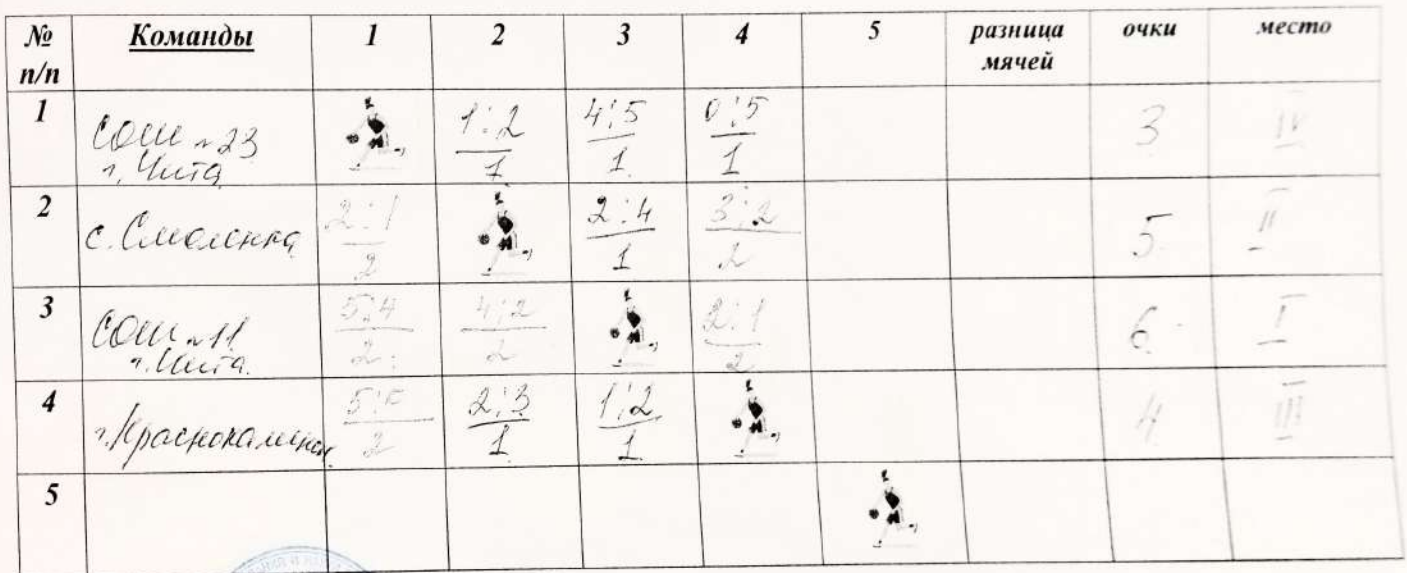 № п/п Команды 1 2 3 4 5 разница мячей очки место
1 СОШ №23 г. Чита 1:2 1 4:5 1 0:5 1 3 IV
2 с. Смоленка 2:1 2 2:4 1 3:2 2 5 II
3 СОШ №11 г. Чита 5:4 2 4:2 2 2:1 2 6 I
4 г. Краснокаменск 2 2:3 1 1:2 1 4 III
5